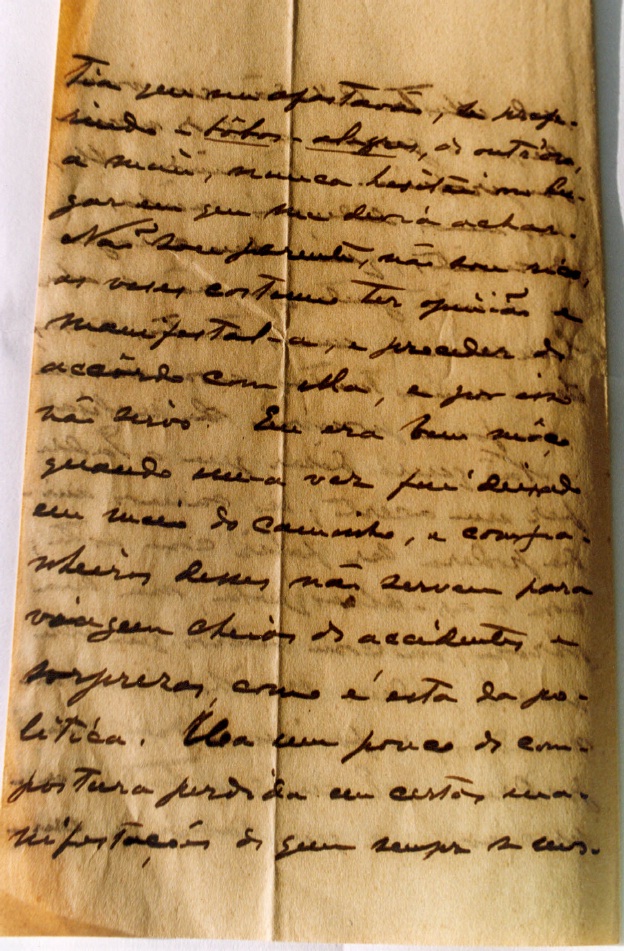 tia que me apostavão, se
sindo a bôbos alegres, os outros,
a mim, nunca hesitei no lu-
gar em que me devia achar.
Não tem parentes, não sou rico,
as vezes costumo ter opinião e
manifestal-a, e proceder de
accôrdo com ella, e por isso
não sirvo. Eu era bem môço
quando uma vez fui deixado
em meio do caminho, e compa-
nheiros desses não servem para
viagem cheia de accidentes e
sorprezas, como é esta da po-
litica. Ha um pouco de com-
postura perdida em certas ma-
nifestações de quem sempre se mos-